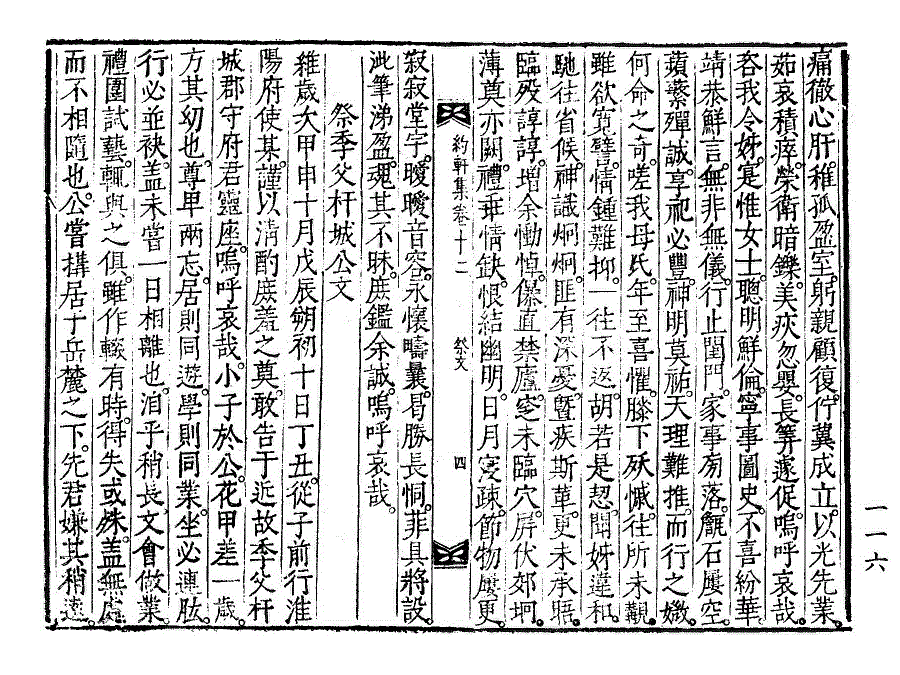 痛徹心肝。稚孤盈室。躬親顧復。佇冀成立。以光先業。
茹哀積瘁。榮衛暗鑠。美疢忽嬰。長筭遽促。嗚呼哀哉。
咨我令姊。寔惟女士。聰明鮮倫。寧事圖史。不喜紛華。
靖恭鮮言。無非無儀。行止閨門。家事旁落。甔石屢空。
蘋蘩殫誠。享祀必豐。神明莫祐。天理難推。而行之媺。
何命之奇。嗟我母氏。年至喜懼。膝下殀慽。往所未覯。
雖欲寬譬。情鍾難抑。一往不返。胡若是恝。聞姊違和。
馳往省候。神識炯炯。匪有深憂。曁疾斯革。更未承晤。
臨歿諄諄。增余慟悼。儤直禁廬。窆未臨穴。屛伏郊坰。
薄奠亦闕。禮乖情缺。恨結幽明。日月寖疎。節物屢更。
約軒集卷十二 祭文 四
寂寂堂宇。曖曖音容。永懷疇曩。曷勝長恫。菲具將設。
泚筆涕盈。魂其不昧。庶鑑余誠。嗚呼哀哉。
祭季父杆城公文
維歲次甲申十月戊辰朔初十日丁丑。從子前行淮
陽府使某。謹以淸酌庶羞之奠。敢告于近故季父杆
城郡守府君靈座。嗚呼哀哉。小子於公。花甲差一歲。
方其幼也。尊卑兩忘。居則同遊。學則同業。坐必連肱。
行必並袂。盖未嘗一日相離也。洎乎稍長。文會做業。
禮圍試藝。輒與之俱。雖作輟有時。得失或殊。盖無處
而不相隨也。公嘗搆居于岳麓之下。先君嫌其稍遠。
一一六